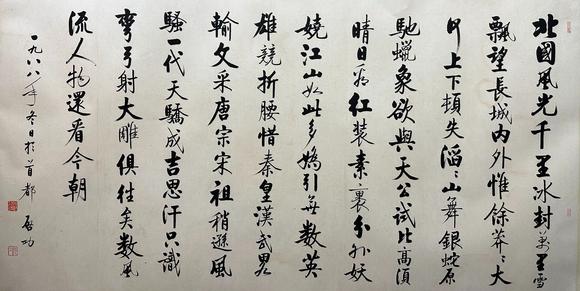 北國風光千里冰封萬里雪
飄望長城內外惟餘莽〻大
河上下頓失滔〻山舞銀蛇原
馳蠟象欲與天公試比高須
晴日看紅装素裹分外妖
嬈江山如此多嬌引無數英
雄競折腰惜秦皇漢武畧
輸文采唐宗宋祖稍遜風
騷一代天驕成吉思汗只識
彎弓射大雕俱往矣數風
流人物還看今朝
一九八八年冬日於首都 启功